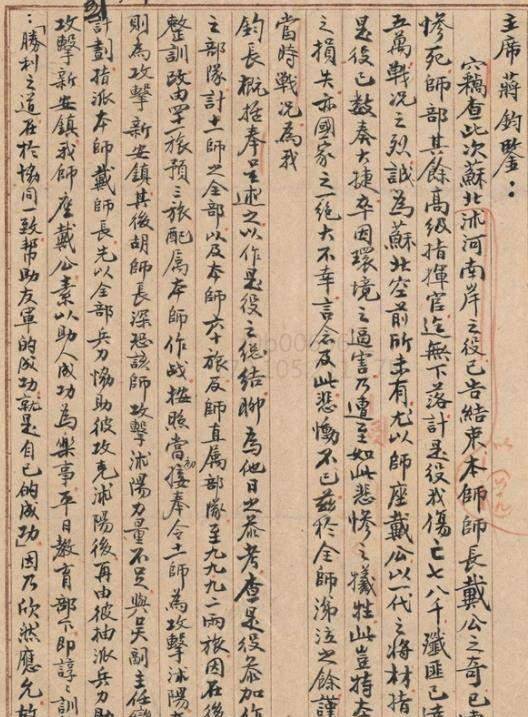 主席蔣鈞鑒：
竊查此次蘇北沭河南岸之役已告結束本師師長戴公之奇已
慘死師部其餘高級指揮官迄無下落計是役我傷亡七八千殲匪已
五萬戰況之烈誠為蘇北空前所未有尤以師座戴公以一代之將材指
是役已數奏大捷卒因環境之逼害乃遭至如此悲慘之犧牲此豈特
之損失亦國家之一絕大不幸言念及此悲慟不已茲於全師涕泣之餘謹
當時戰況為我
鈞長概括奉呈述之以作是役之總結聊為他日之參考查是役參加作
之部隊計十一師之全部以及本師六十旅及師直屬部隊至九九九二兩旅因在後
整訓改由四一旅預三旅配屬本師作戰按照當初接奉令十一師為攻擊沭陽
則為攻擊新安鎮其後胡師長深恐該師攻擊沭陽力量不足與吳副主任
計劃指派本師戴師長先以全部兵力協助彼攻克沭陽後再由彼抽派兵力助
攻擊新安鎮我師座戴公素以助人成功為樂事平日教育部下即諄諄訓
：「勝利之道在於協同一致幫助友軍的成功就是自己的成功」因乃欣然應允